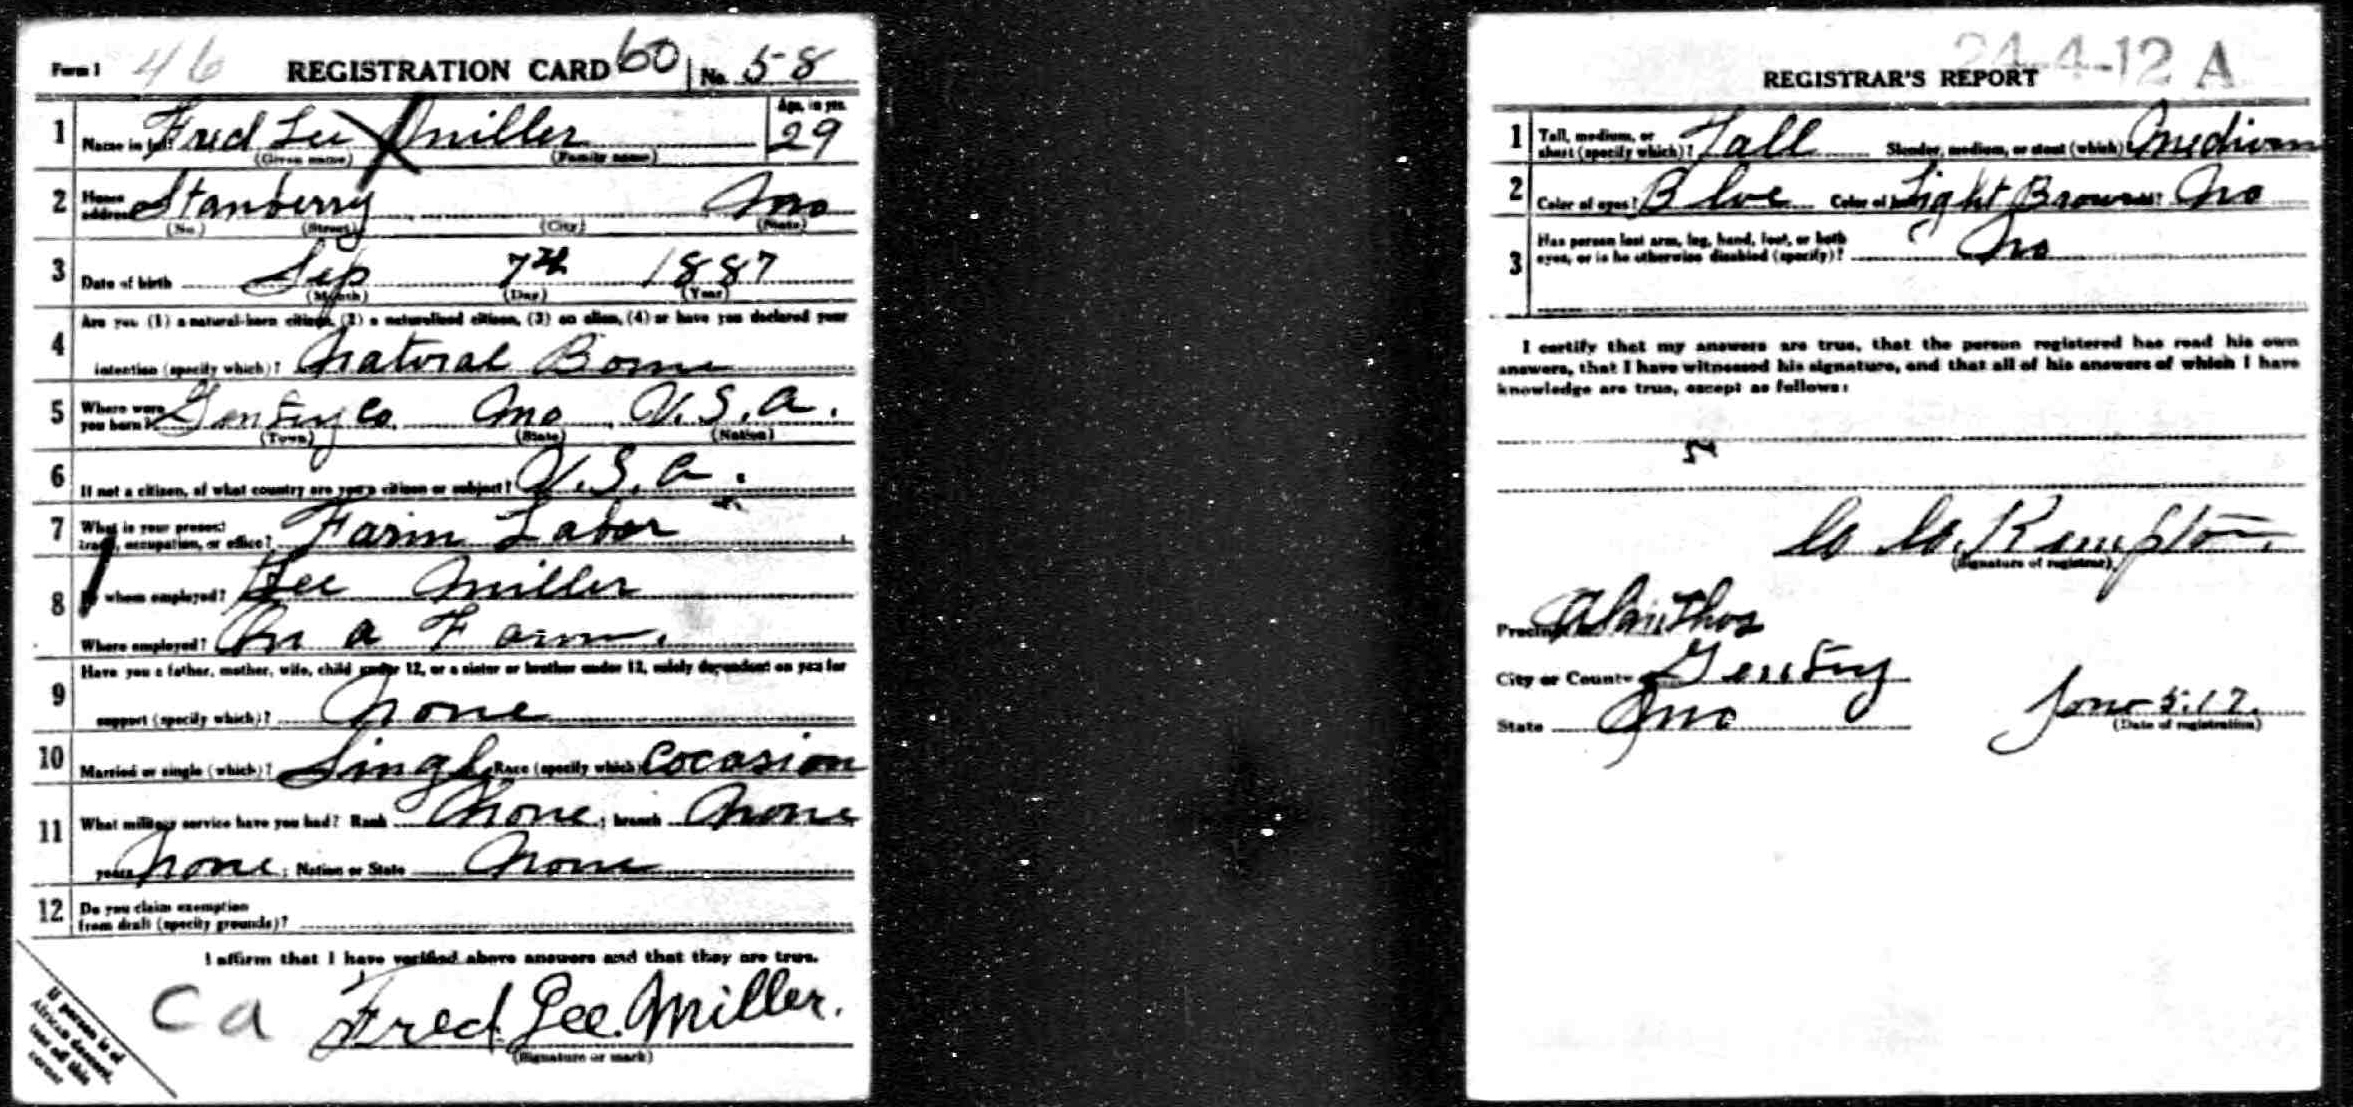 Form 1 46 REGISTRATION CARD 60 No. 58
1 Name in full Fred Lee Miller Age, in yrs. 29
(Given name) (Family name)
2 Home address Stanberry Mo
(No.) (Street) (City) (State)
3 Date of birth Sep 7th 1887
(Month) (Day) (Year)
Are you (1) a natural-born citizen, (2) a naturalized citizen, (3) an alien, (4) or have you declared your
4 intention (specify which)? Natural Borne
5 Where were you born? Gentry Co. Mo U.S.A.
(Town) (State) (Nation)
6 If not a citizen, of what country are you a citizen or subject? U.S.A.
7 What is your present trade, occupation, or office? Farm Labor
8 By whom employed? Lee Miller
Where employed? On a Farm.
Have you a father, mother, wife, child under 12, or a sister or brother under 12, solely dependent on you for
9 support (specify which)? None
10 Married or single (which)? Single Race (specify which) Cocasion
11 What military service have you had? Rank None ; branch None
years None ; Nation or State None
12 Do you claim exemption
from draft (specify grounds)?
I affirm that I have verified above answers and that they are true.
Ca Fred Lee Miller.
(Signature or mark)
If person is of
African descent,
tear off this
corner
24-4-12 A
REGISTRAR'S REPORT
1 Tall, medium, or short (specify which)? Tall Slender, medium, or stout (which)? Medium
2 Color of eyes? Blue Color of Light Brown No
Has person lost arm, leg, hand, foot, or both
3 eyes, or is he otherwise disabled (specify)? No
I certify that my answers are true, that the person registered has read his own
answers, that I have witnessed his signature, and that all of his answers of which I have
knowledge are true, except as follows:
Kempton
(Signature of registrar)
Precinct Alanthos
City or County Gentry
State Mo
June 5. 17.
(Date of registration)